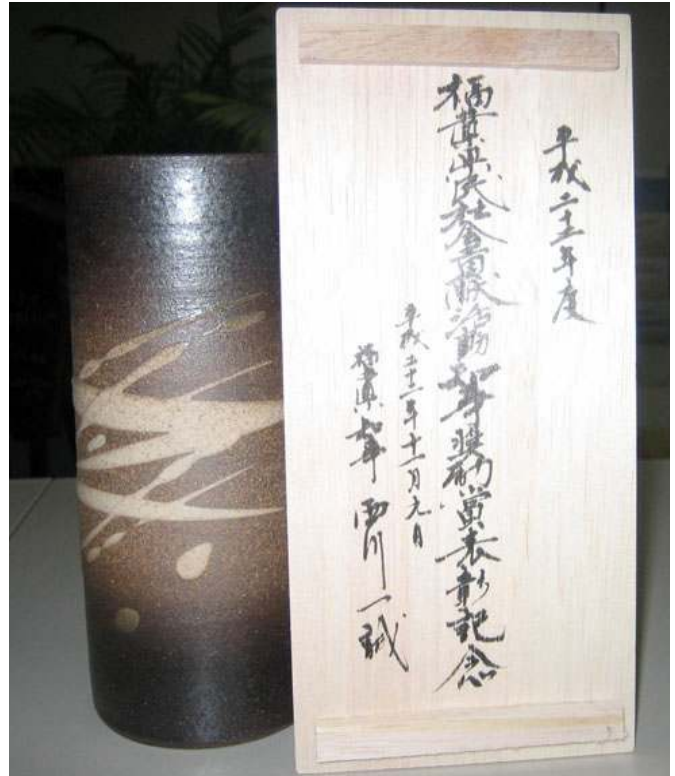 平成二十二年度
福井県民社会貢献活動知事奨励賞表彰記念
平成二十二年十一月九日
福井県知事 西川一誠